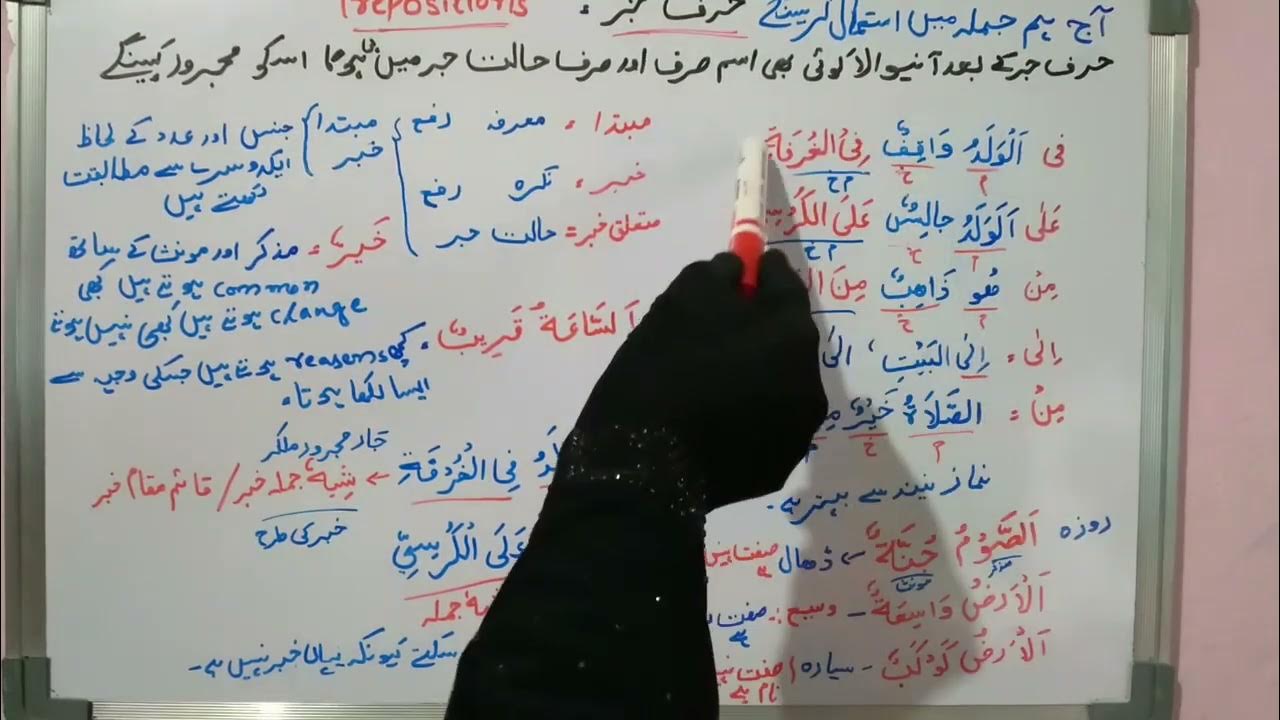 آج ہم جملہ میں استعمال کرینگے حرف جر : Prepositions
حرف جر کے بعد آنیوالا کوئی بھی اسم صرف اور صرف حالت جر میں ہوگا اسکو مجرور کہینگے
فی اَلْوَلَدُ وَاقِفٌ فِی الْغُرْفَةِ
م خ م خ
عَلٰی اَلْوَلَدُ جَالِسٌ عَلَی الْكُرْسِ
م خ م خ
مِنْ ھُوَ ذَاھِبٌ مِنَ
م خ
اِلٰی = اِلٰی الْبَیْتِ ، الی
مِنْ = الصَّلَاةُ خَیْرٌ
م خ م
نماز نیند سے بہتر ہے۔
روزہ اَلصَّوْمُ جُنَّةٌ ← ڈھال صفت
مذکر مونث
اَلْاَرْضُ وَاسِعَةٌ - وسیع :- صفت ہے
اَلْاَرْضُ كَوْكَبٌ - سیارہ / صفت
نام ہے
مبتدا = معرفہ رفع
خبر = نکرہ رفع
متعلق خبر = حالت جر
مبتدا
خبر
جنس اور عدد کے لحاظ
ایکدوسرے سے مطابقت
رکھتے ہیں
خَیْرٌ = مذکر اور مونث کے ساتھ
common ہوتے ہیں کبھی
change ہوتے ہیں کبھی نہیں ہوتے
اَلسَّاعَةُ قَرِیْبٌ ، کچھ reasons ہوتے ہیں جسکی وجہ سے
ایسا لکھا
جار مجرور ملکر
فِی الْغُرْفَةِ ← شِبہ جملہ خبر / قائم مقام خبر
خبر کی طرح
عَلَی الْكُرْسِیِّ
جملہ
سکتے کیونکہ یہاں خبر نہیں ہے۔